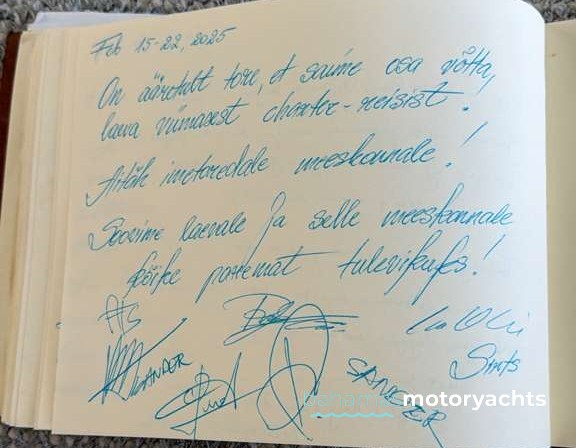 Feb 15-22, 2025
On ääretult tore, et saime osa võtta
laeva viimasest charter-reisist!
Aitäh imetoredale meeskonnale!
Soovime laevale ja selle meeskonnale
kõike paremat tulevikuks!
Sints
SANDER
motoryachts